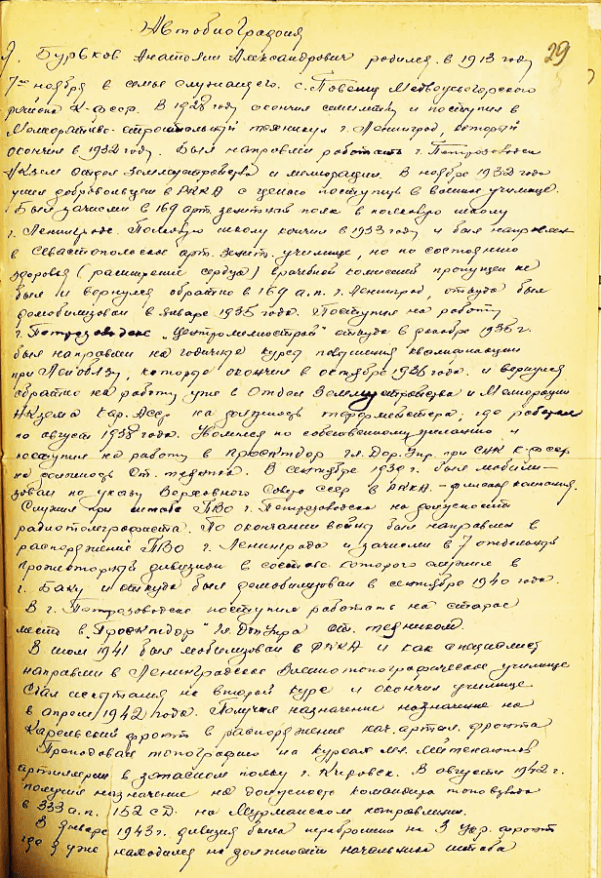 Автобиография
29
Я. Бурьков Анатолий Александрович родился в 1913 году
7го ноября в семье служащего. с. Повенец Медвежьегорского
района К-фсср. В 1928 году окончил семилетку и поступил в
Мелиоративно-строительный техникум г. Ленинград, который
окончил в 1932 году. Был направлен работать г. Петрозаводск
Н/Кзем отдел Землеустройства и мелиорации. В ноябре 1932 года
ушел добровольцем в РККА с целью поступить в военное училище.
Был зачислен в 169 арт. зенитный полк в полковую школу
г. Ленинграде. Полковую школу кончил в 1933 году и был направлен
в Севастопольское арт. зенит. училище, но по состоянию
здоровья (расширение сердца) врачебной комиссией пропущен не
был и вернулся обратно в 169 а.п. г. Ленинград, откуда был
демобилизован в январе 1935 года. Поступил на работу
г. Петрозаводск "Центромелиострой" откуда в декабре 1935 г.
был направлен на годичные курсы повышения квалификации
при, которые окончил в октябре 1936 года. и вернулся
обратно на работу уже в Отдел Землеустройства и Мелиорации
Н/Кзема Кар. Асср на должность, где работал
по август 1938 года. Уволился по собственному желанию и
поступил на работу в Проектдор Гл. Дор. Упр. при СНК К-фсср
на должность Ст. техника. В сентябре 1939 г. был мобили-
зован по указу Верховного Совета ссср в РККА. - финская кампания.
Служил при штабе ПВО г. Петрозаводска на должности
радиотелеграфиста. По окончании войны был направлен в
распоряжение ПВО г. Ленинграда и зачислен в 7
дивизион в составе которого служил в
г. Баку и откуда был демобилизован в сентябре 1940 года.
В г. Петрозаводске поступил работать на старое
место в "Проектдор" Гл. ДорУпра ст. техником.
В июле 1941 был мобилизован в РККА и как специалист
направлен в Ленинградское Военнотопографическое училище
Сдал испытания на второй курс и окончил училище
в апреле 1942 года. Получил назначение назначение на
Карельский фронт в распоряжение нач. артил. фронта
Преподавал топографию на курсах мл. лейтенантов
артиллерии в запасном полку г. Кировск. В августе 1942 г.
получил назначение на должность командира топовзвода
в 333 а.п. 152 СД. на Мурманском направлении.
В январе 1943 г. дивизия была переброшена на 3 Укр. фронт
где я уже находился на должности начальника штаба